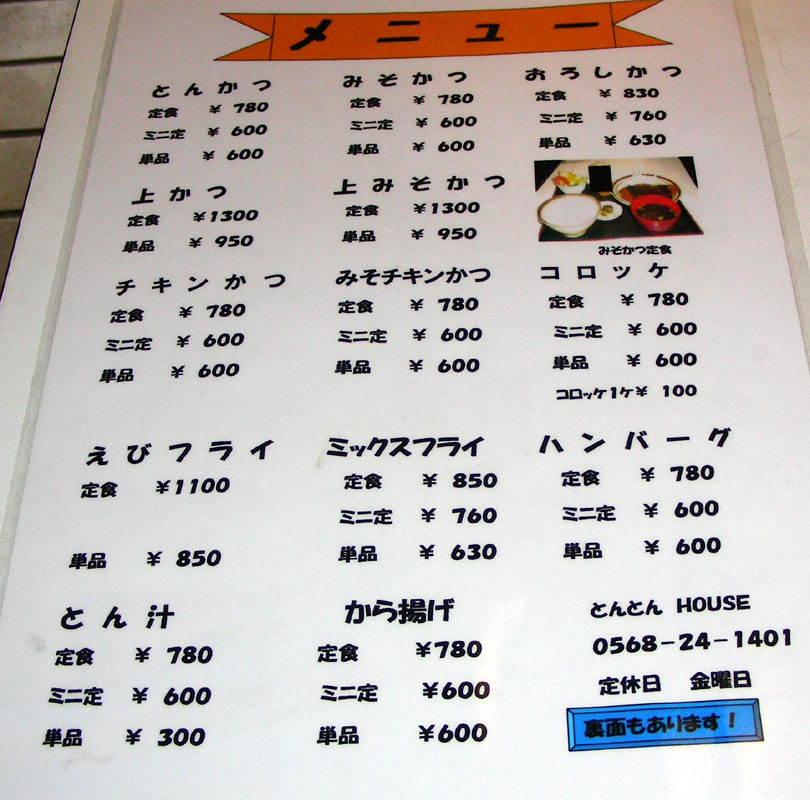 メニュー
とんかつ
定食 ¥780
ミニ定 ¥600
単品 ¥600
みそかつ
定食 ¥780
ミニ定 ¥600
単品 ¥600
おろしかつ
定食 ¥830
ミニ定 ¥760
単品 ¥630
上かつ
定食 ¥1300
単品 ¥950
上みそかつ
定食 ¥1300
単品 ¥950
みそかつ定食
チキンかつ
定食 ¥780
ミニ定 ¥600
単品 ¥600
みそチキンかつ
定食 ¥780
ミニ定 ¥600
単品 ¥600
コロッケ
定食 ¥780
ミニ定 ¥600
単品 ¥600
コロッケ1ケ¥ 100
えびフライ
定食 ¥1100
単品 ¥850
ミックスフライ
定食 ¥850
ミニ定 ¥760
単品 ¥630
ハンバーグ
定食 ¥780
ミニ定 ¥600
単品 ¥600
とん汁
定食 ¥780
ミニ定 ¥600
単品 ¥300
から揚げ
定食 ¥780
ミニ定 ¥600
単品 ¥600
とんとん HOUSE
0568-24-1401
定休日 金曜日
裏面もあります!